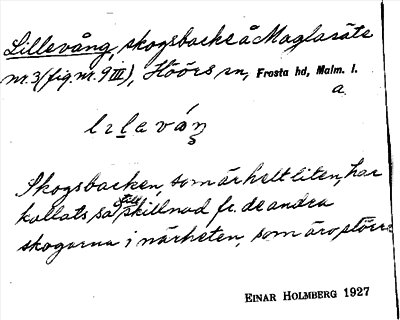 Lillevång, skogsbacke å Maglasäte
nr. 3 (fig. nr. 9 III), Höörs sn, Frosta hd, Malm. l.
a.
lılaváŋ
Skogsbacken, som är helt liten, har
kallats så till skillnad fr. de andra
skogarna i närheten, som äro större.
EINAR HOLMBERG 1927